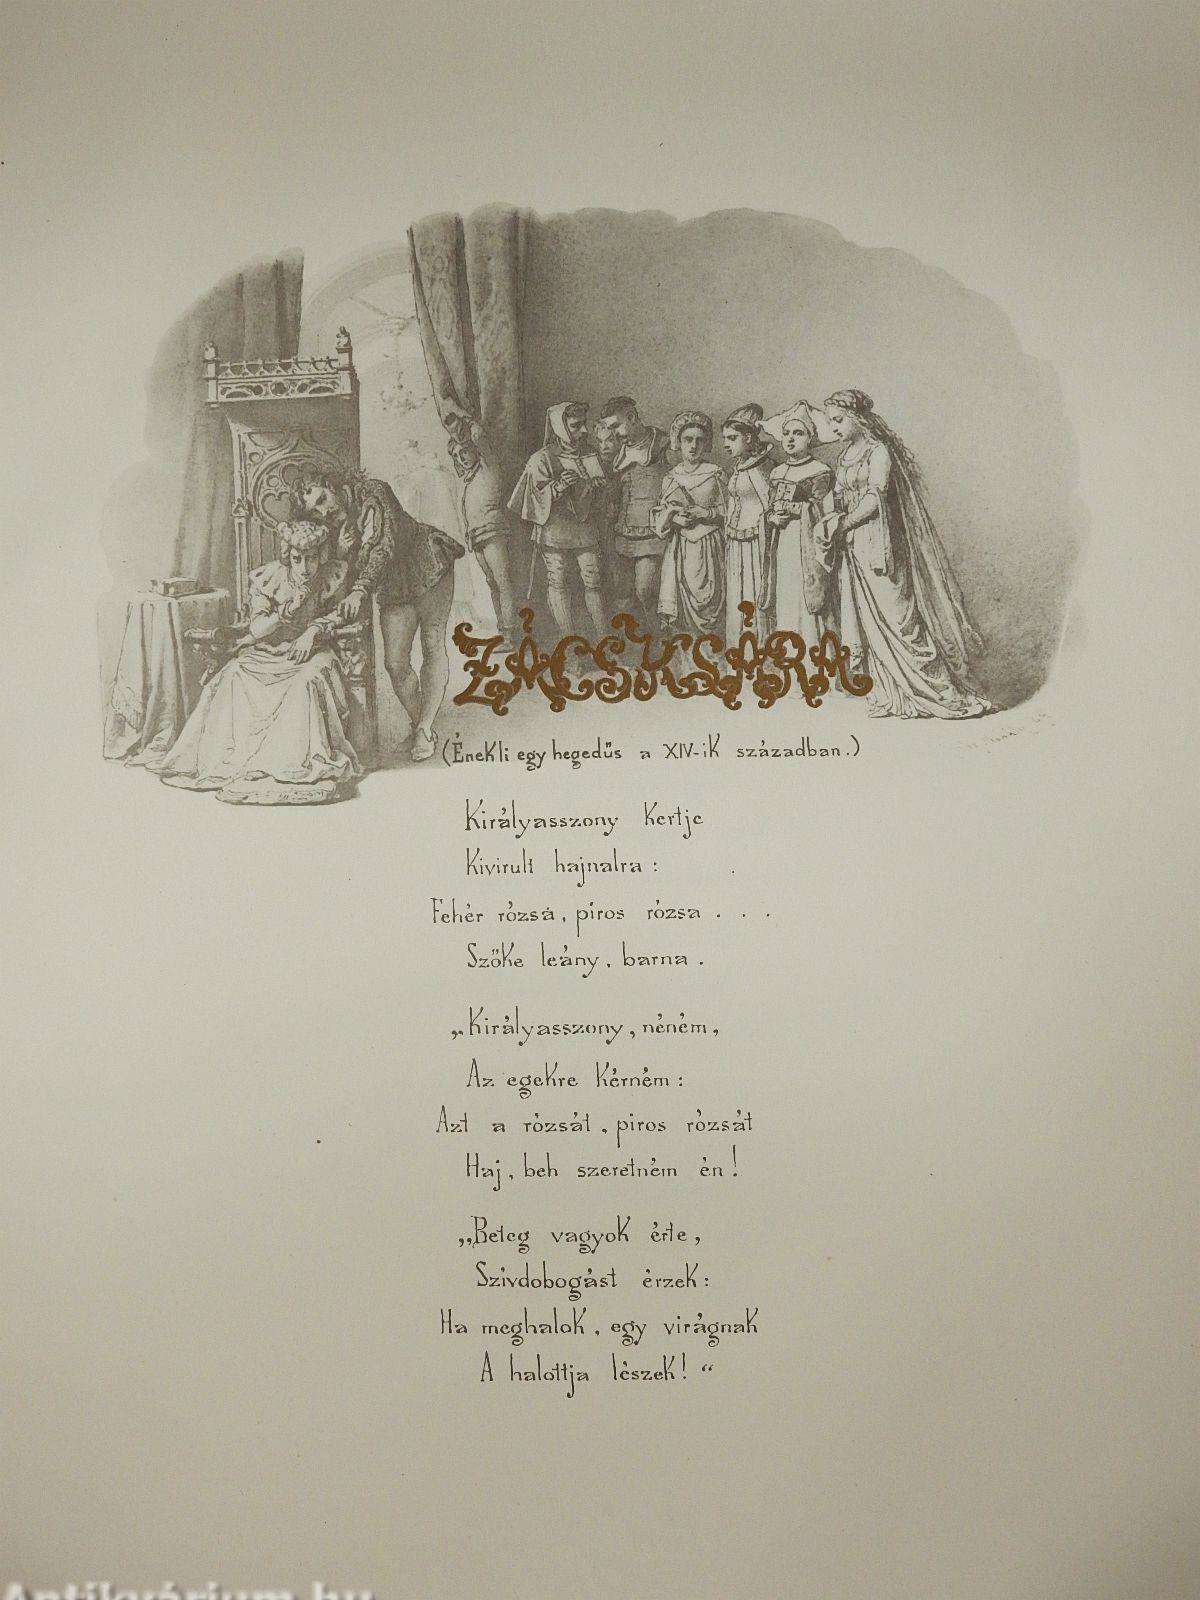 ZÁCS KLÁRA
(Énekli egy hegedűs a XIV-ik században.)
Királyasszony kertje
Kivirult hajnalra:
Fehér rózsá, piros rózsa . . .
Szőke leány, barna.
„Királyasszony, néném,
Az egekre kérném:
Azt a rózsát, piros rózsát
Haj, beh szeretném én!
„Beteg vagyok érte,
Szivdobogást érzek:
Ha meghalok, egy virágnak
A halottja lészek!“
Antikvárium.hu